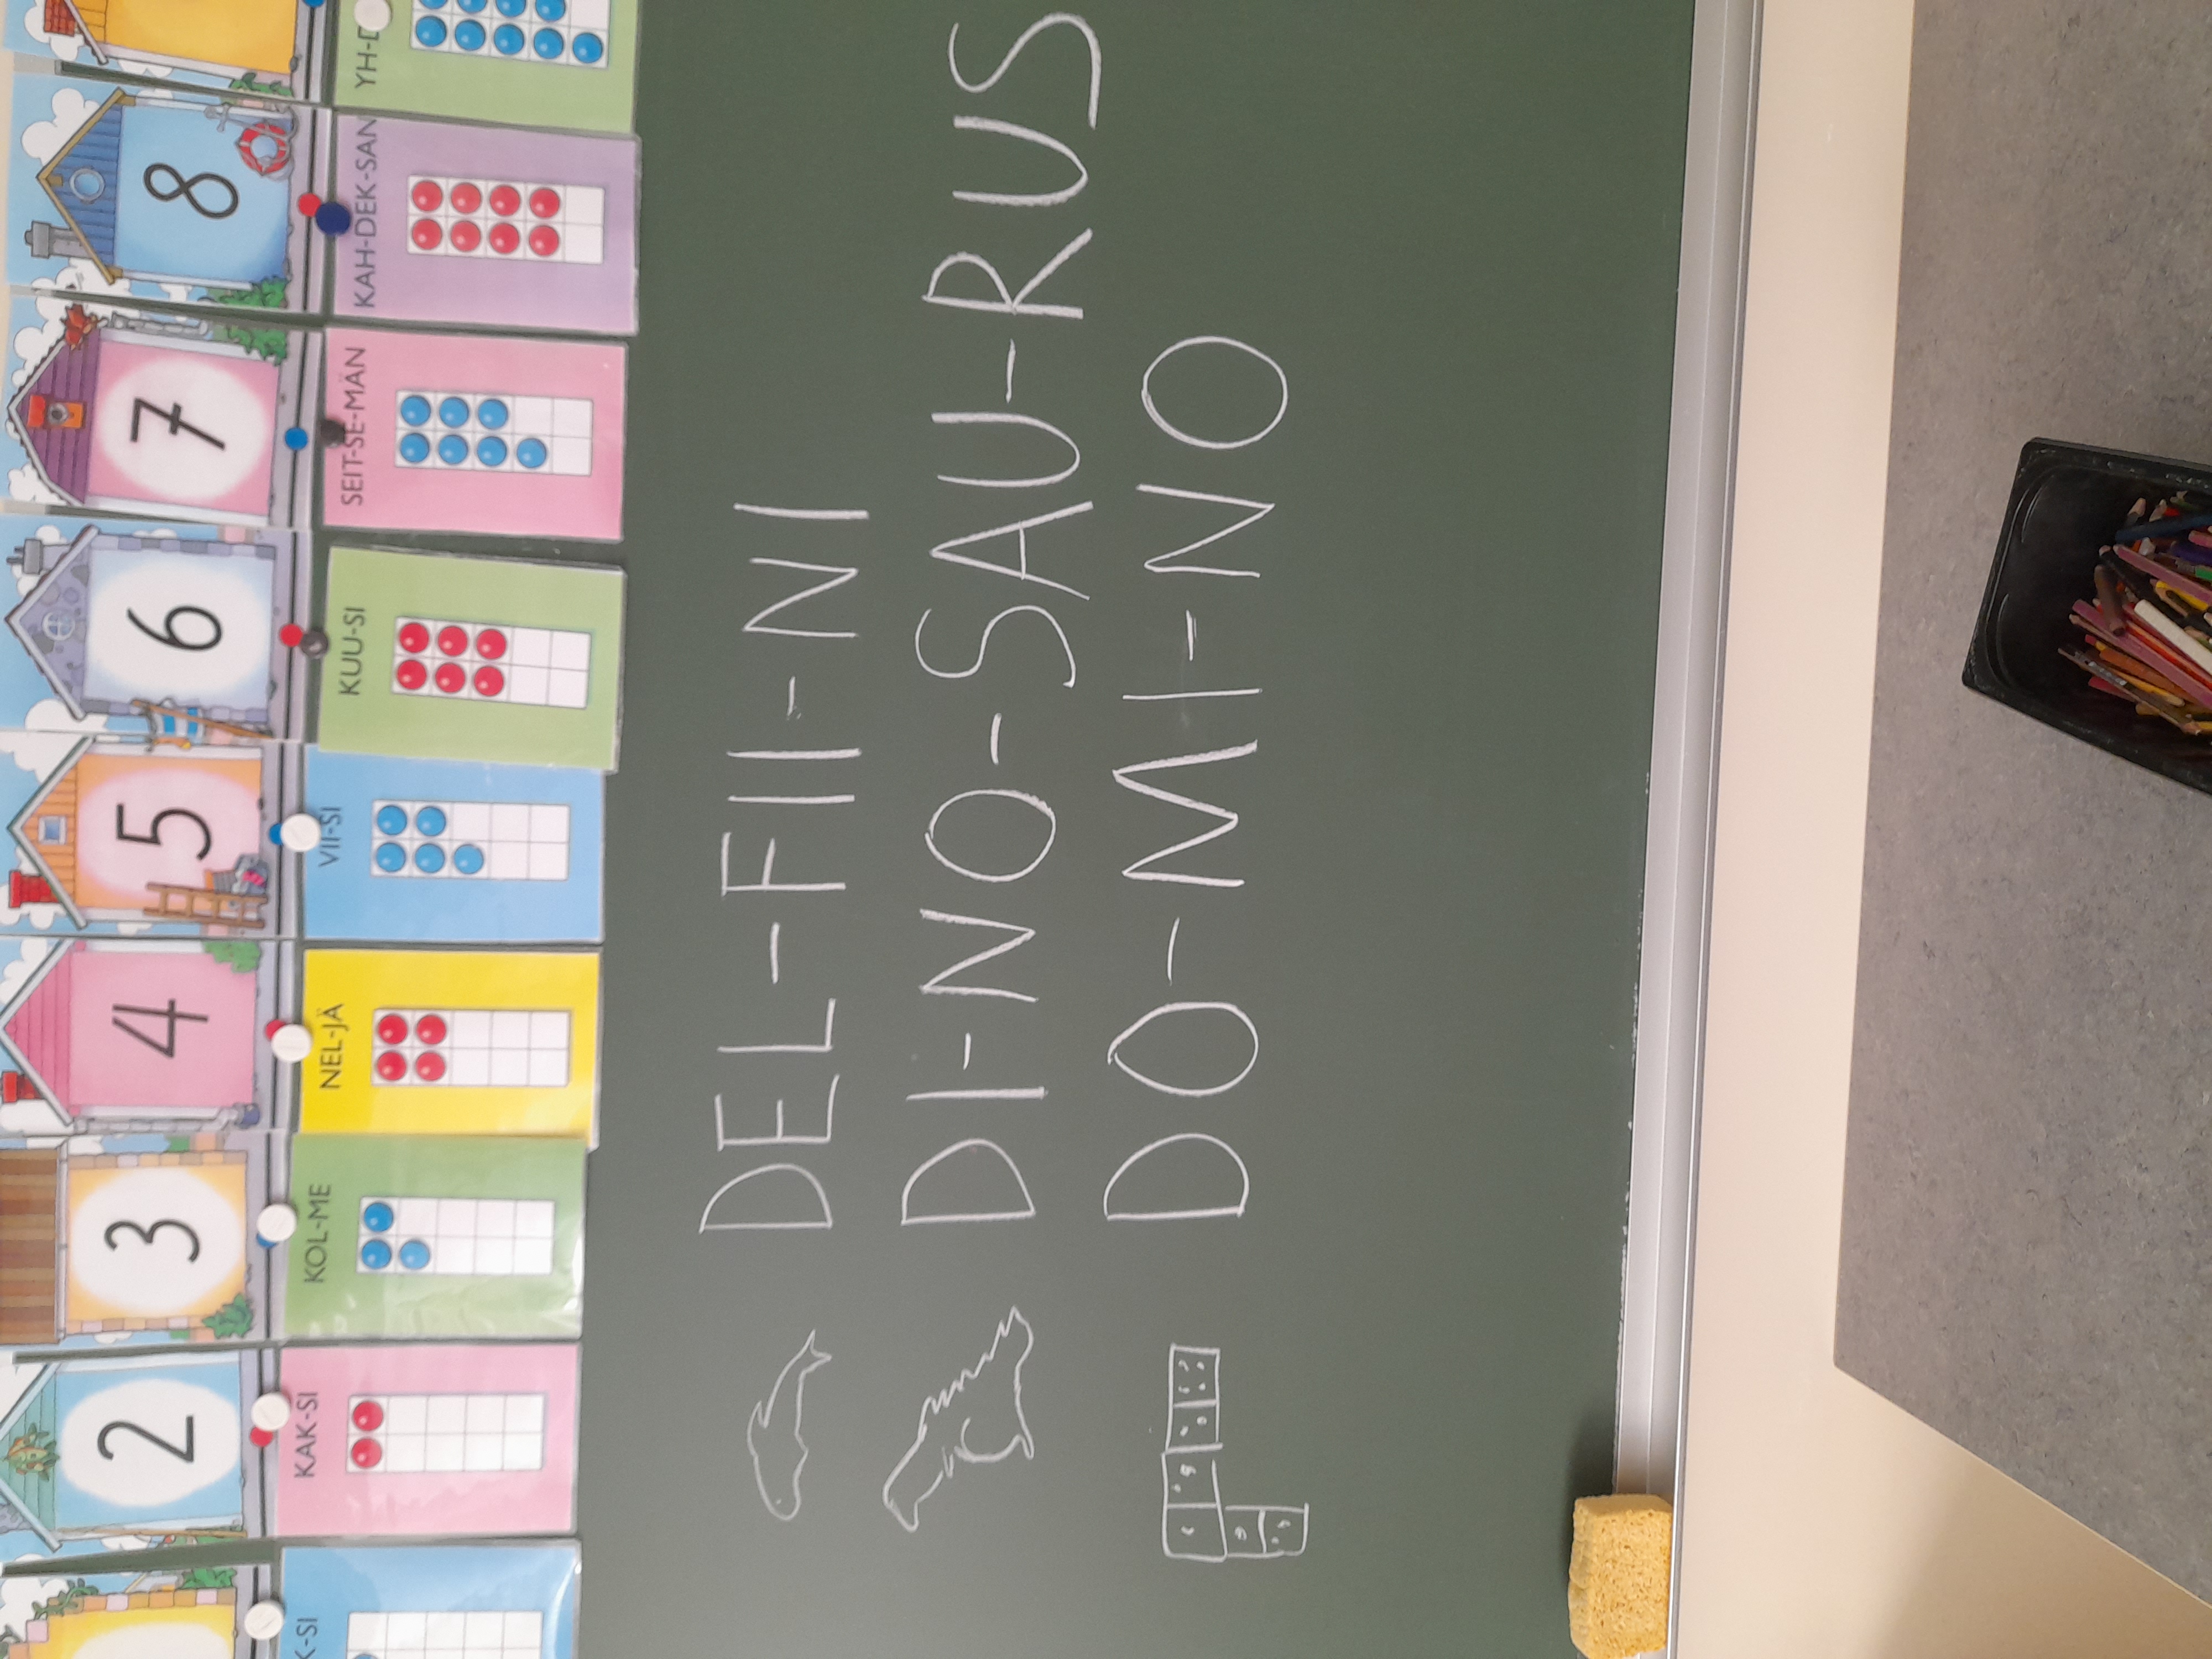 2 3 4 5 6 7 8
KAK-SI KOL-ME NEL-JÄ VII-SI KUU-SI SEIT-SE-MÄN KAH-DEK-SAN
DEL-FII-NI
DI-NO-SAU-RUS
DO-MI-NO